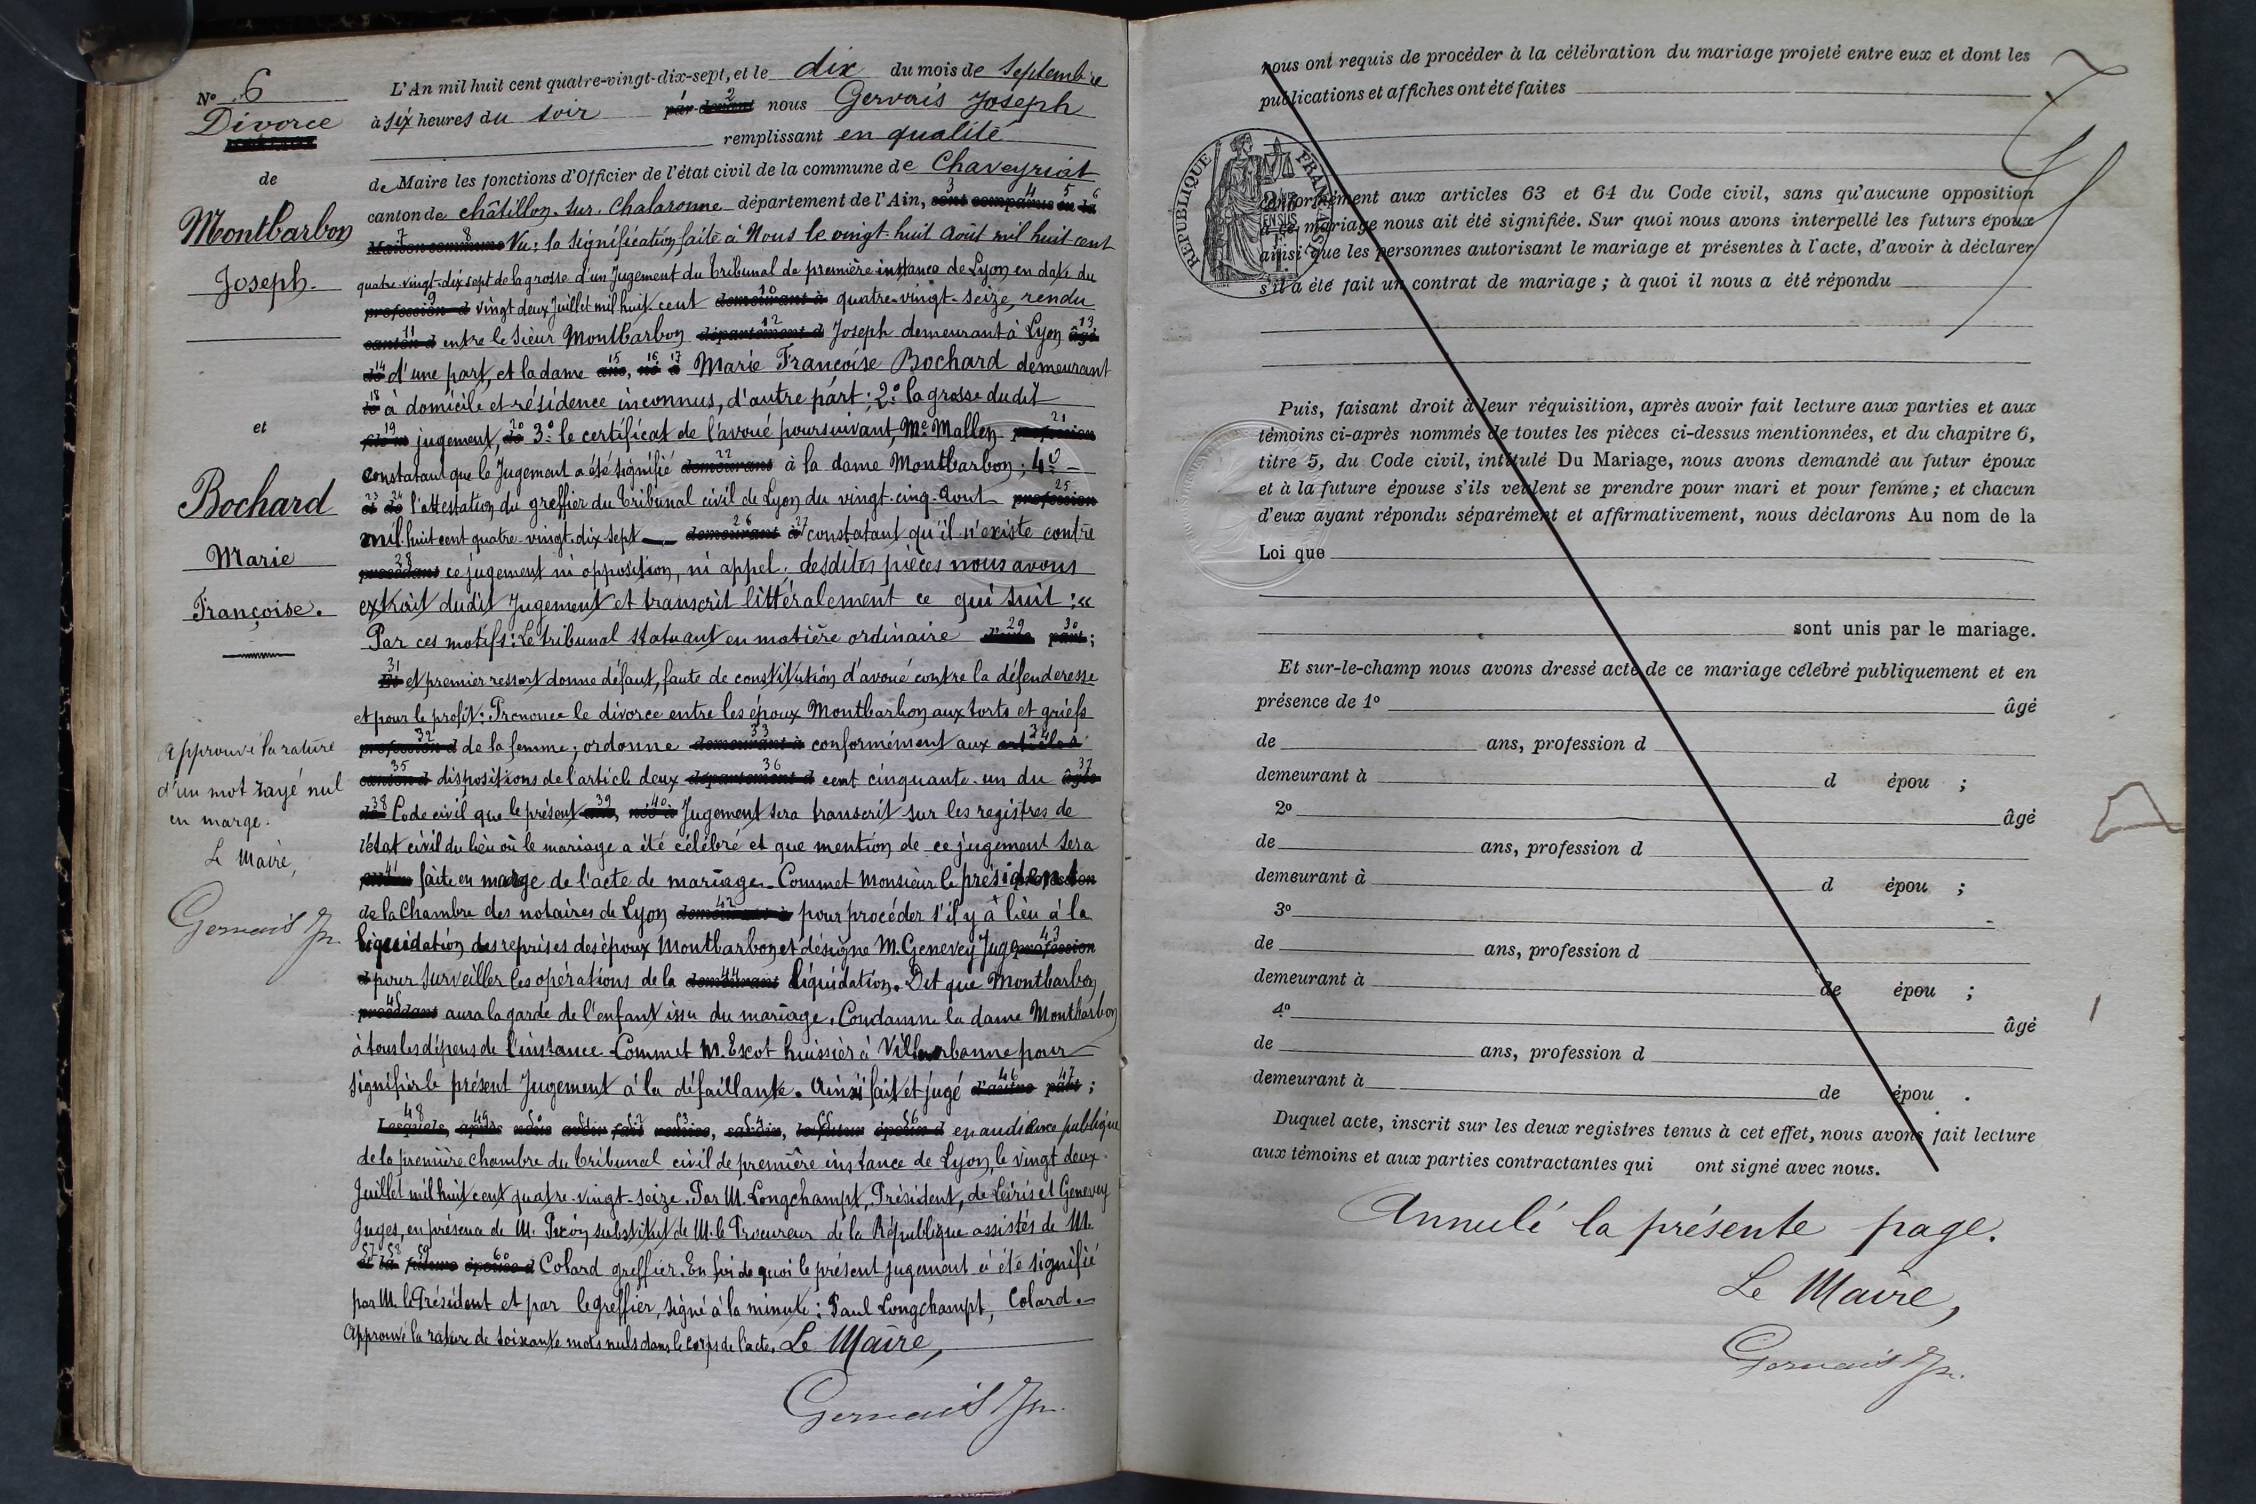 N° 6
Divorce
de
Montbarbon
Joseph.
et
Bochard
Marie
Françoise.
Approuvé la rature
d'un mot rayé nul
en marge.
Le Maire,
Gervais Jh.
L'An mil huit cent quatre-vingt-dix-sept, et le dix du mois de Septembre
à six heures du soir par devant 2 nous Gervais Joseph
remplissant en qualité
de Maire les fonctions d'Officier de l'état civil de la commune de Chaveyriat
canton de châtillon-sur-Chalaronne département de l'Ain, sont 3 comparus 4 en 5 la 6
Maison 7 commune 8 Vu: la signification faite à Nous le vingt-huit Août mil huit cent
quatre-vingt-dix sept de la grosse d'un Jugement du tribunal de première instance de Lyon en date du
profession d 9 vingt deux Juillet mil huit cent demeurant à 10 quatre-vingt-seize, rendu
canton d 11 entre le Sieur Montbarbon département d 12 Joseph demeurant à Lyon âgé 13
de 14 d'une part, et la dame ans 15, né 16 à 17 Marie Françoise Bochard demeurant
le 18 à domicile et résidence inconnus, d'autre part; 2° la grosse dudit
fils m 19 jugement, de 20 3° le certificat de l'avoué poursuivant, Me Mallen profession 21
constatant que le Jugement a été signifié demeurant 22 à la dame Montbarbon; 4°
et 23 de 24 l'attestation du greffier du tribunal civil de Lyon du vingt-cinq-Aout profession 25
mil huit cent quatre-vingt-dix sept demeurant 26 à 27 constatant qu'il n'existe contre
procédant 28 ce jugement ni opposition, ni appel; desdites pièces nous avons
extrait dudit Jugement et transcrit littéralement ce qui suit: «
Par ces motifs: Le tribunal statuant en matière ordinaire d'une 29 part 30;
Et 31 et premier ressort donne défaut, faute de constitution d'avoué contre la défenderesse
et pour le profit: Prononce le divorce entre les époux Montbarbon aux torts et griefs
profession d 32 de la femme; ordonne demeurant à 33 conformément aux articles 34
canton d 35 dispositions de l'article deux département d 36 cent cinquante-un du âgée 37
de 38 Code civil que le présent ans 39, née à 40 Jugement sera transcrit sur les registres de
l'état civil du lieu où le mariage a été célébré et que mention de ce jugement sera
41 faite en marge de l'acte de mariage. Commet Monsieur le président
de la Chambre des notaires de Lyon demeurant à 42 pour procéder s'il y a lieu à la
liquidation des reprises des époux Montbarbon et désigne M. Genevey Juge profession 43
d pour surveiller les opérations de la demeurant 44 liquidation. Dit que Montbarbon
procédant 45 aura la garde de l'enfant issu du mariage. Condamne la dame Montbarbon
à tous les dépens de l'instance. Commet M. Escot huissier à Villeurbanne pour
signifier le présent Jugement à la défaillante. Ainsi fait et jugé d'autre 46 part 47;
Lesquels 48, après 49 nous 50 avoir 51 fait 52 notice 53, savoir 54, le futur 55 époux d 56 en audience publique
de la première chambre du tribunal civil de première instance de Lyon, le vingt deux
Juillet mil huit cent quatre-vingt-seize. Par M. Longchampt, Président, de Leiris et Genevey
Juges, en présence de M. substitut de M. le Procureur de la République assistés de M.
et 57 la 58 future 59 épouse d 60 Colard greffier. En foi de quoi le présent jugement a été signifié
par M. le Président et par le greffier, signé à la minute: Paul Longchampt, Colard.
Approuvé la rature de soixante mots nuls dans le corps de l'acte. Le Maire,
Gervais Jh.
nous ont requis de procéder à la célébration du mariage projeté entre eux et dont les
publications et affiches ont été faites
RÉPUBLIQUE FRANÇAISE
conformément aux articles 63 et 64 du Code civil, sans qu'aucune opposition
à ce mariage nous ait été signifiée. Sur quoi nous avons interpellé les futurs époux
ainsi que les personnes autorisant le mariage et présentes à l'acte, d'avoir à déclarer
s'il a été fait un contrat de mariage; à quoi il nous a été répondu
Puis, faisant droit à leur réquisition, après avoir fait lecture aux parties et aux
témoins ci-après nommés de toutes les pièces ci-dessus mentionnées, et du chapitre 6,
titre 5, du Code civil, intitulé Du Mariage, nous avons demandé au futur époux
et à la future épouse s'ils veulent se prendre pour mari et pour femme; et chacun
d'eux ayant répondu séparément et affirmativement, nous déclarons Au nom de la
Loi que
sont unis par le mariage.
Et sur-le-champ nous avons dressé acte de ce mariage célébré publiquement et en
présence de 1° âgé
de ans, profession d
demeurant à d épou ;
2° âgé
de ans, profession d
demeurant à d épou ;
3°
de ans, profession d
demeurant à de épou ;
4° âgé
de ans, profession d
demeurant à de épou .
Duquel acte, inscrit sur les deux registres tenus à cet effet, nous avons fait lecture
aux témoins et aux parties contractantes qui ont signé avec nous.
Annulé la présente page.
Le Maire,
Gervais Jh.